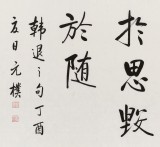 於思毀
於随
韓退之句丁酉
夏日元樸